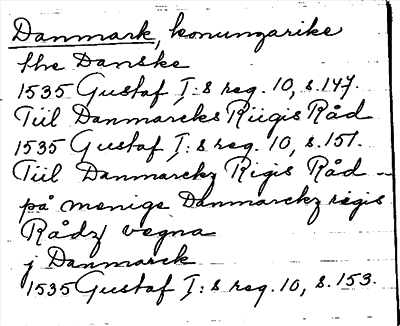 Danmark, konungarike
the Danske
1535 Gustaf I:s reg. 10, s. 147.
Tiil Danmarcks Riigis Råd
1535 Gustaf I:s reg. 10, s. 151.
Tiil Danmarckz Rigis Råd -
på menige Danmarckz rigis
Rådz vegna
j Danmarck
1535 Gustaf I:s reg. 10, s. 153.